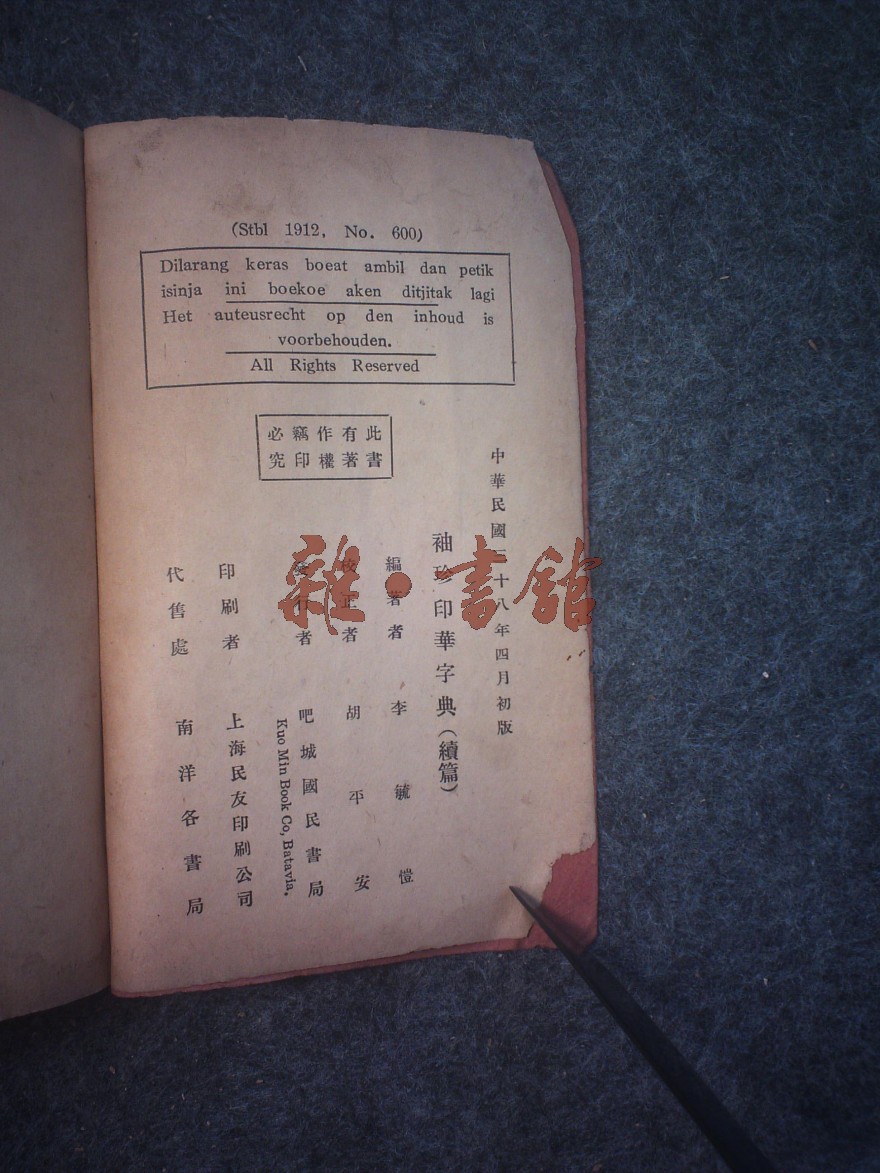 (Stbl 1912, No. 600)
Dilarang keras boeat ambil dan petik
isinja ini boekoe aken ditjitak lagi
Het auteusrecht op den inhoud is
voorbehouden.
All Rights Reserved
此書
有著
作權
竊印
必究
中華民國三十八年四月初版
袖珍印華字典(續篇)
編著者 李毓愷
校正者 胡平安
發行者 吧城國民書局
Kuo Min Book Co, Batavia,
印刷者 上海民友印刷公司
代售處 南洋各書局
雜·書館